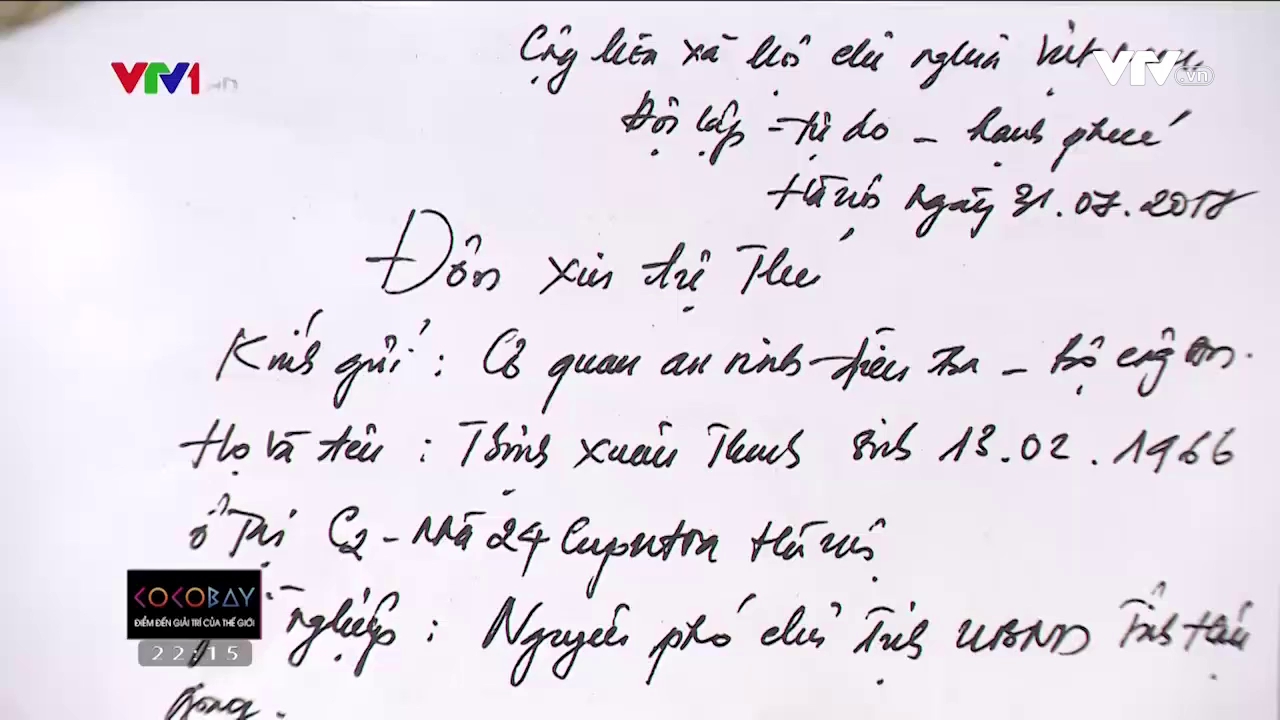 VTV1 HD
VTV.vn
Cộng hòa xã hội chủ nghĩa Việt Nam
Độc lập - tự do - hạnh phúc
Hà nội ngày 31.07.2017
Đơn xin tự Thú
Kính gửi : Cơ quan an ninh điều tra - Bộ công an.
Họ và tên : Trịnh Xuân Thanh sinh 13.02.1966
ở Tại C2 - Nhà 24 Hà nội
nghiệp : Nguyên phó chủ Tịch UBND Tỉnh Hậu
Giang.
COCOBAY
ĐIỂM ĐẾN GIẢI TRÍ CỦA THẾ GIỚI
22:15